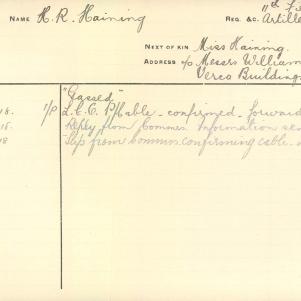 NAME H. R. Haining
11th F
REG. &C. Artille
NEXT OF KIN Miss Haining.
ADDRESS c/o Messrs William
Verco Building
"Gassed"
16. 1/P L.E.C. P/Cable - confirmed, forward
15. Reply from Commrs Information se
18 Slip from Commrs confirming cable -